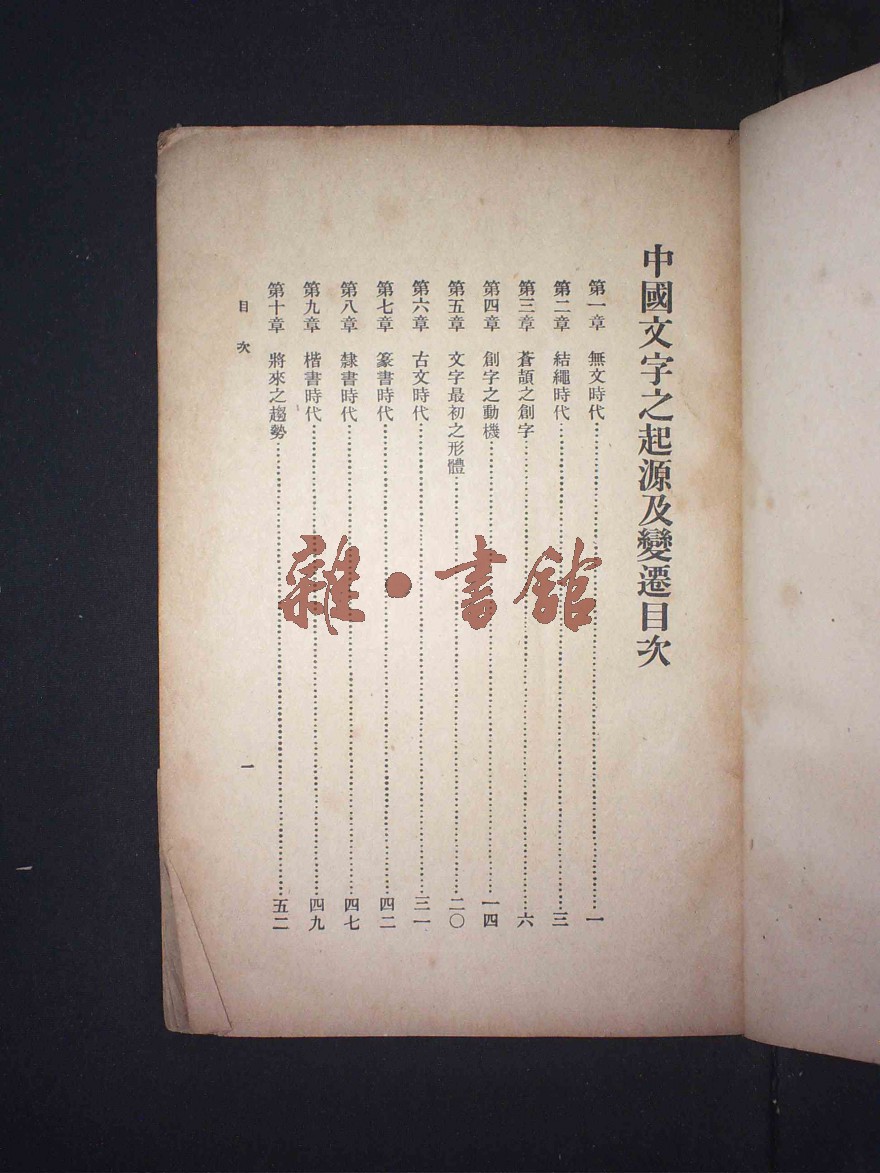 中國文字之起源及變遷目次
第一章　無文時代……一
第二章　結繩時代……三
第三章　蒼頡之創字……六
第四章　創字之動機……一四
第五章　文字最初之形體……二〇
第六章　古文時代……三一
第七章　篆書時代……四二
第八章　隸書時代……四七
第九章　楷書時代……四九
第十章　將來之趨勢……五二
目次　一
雜·書館